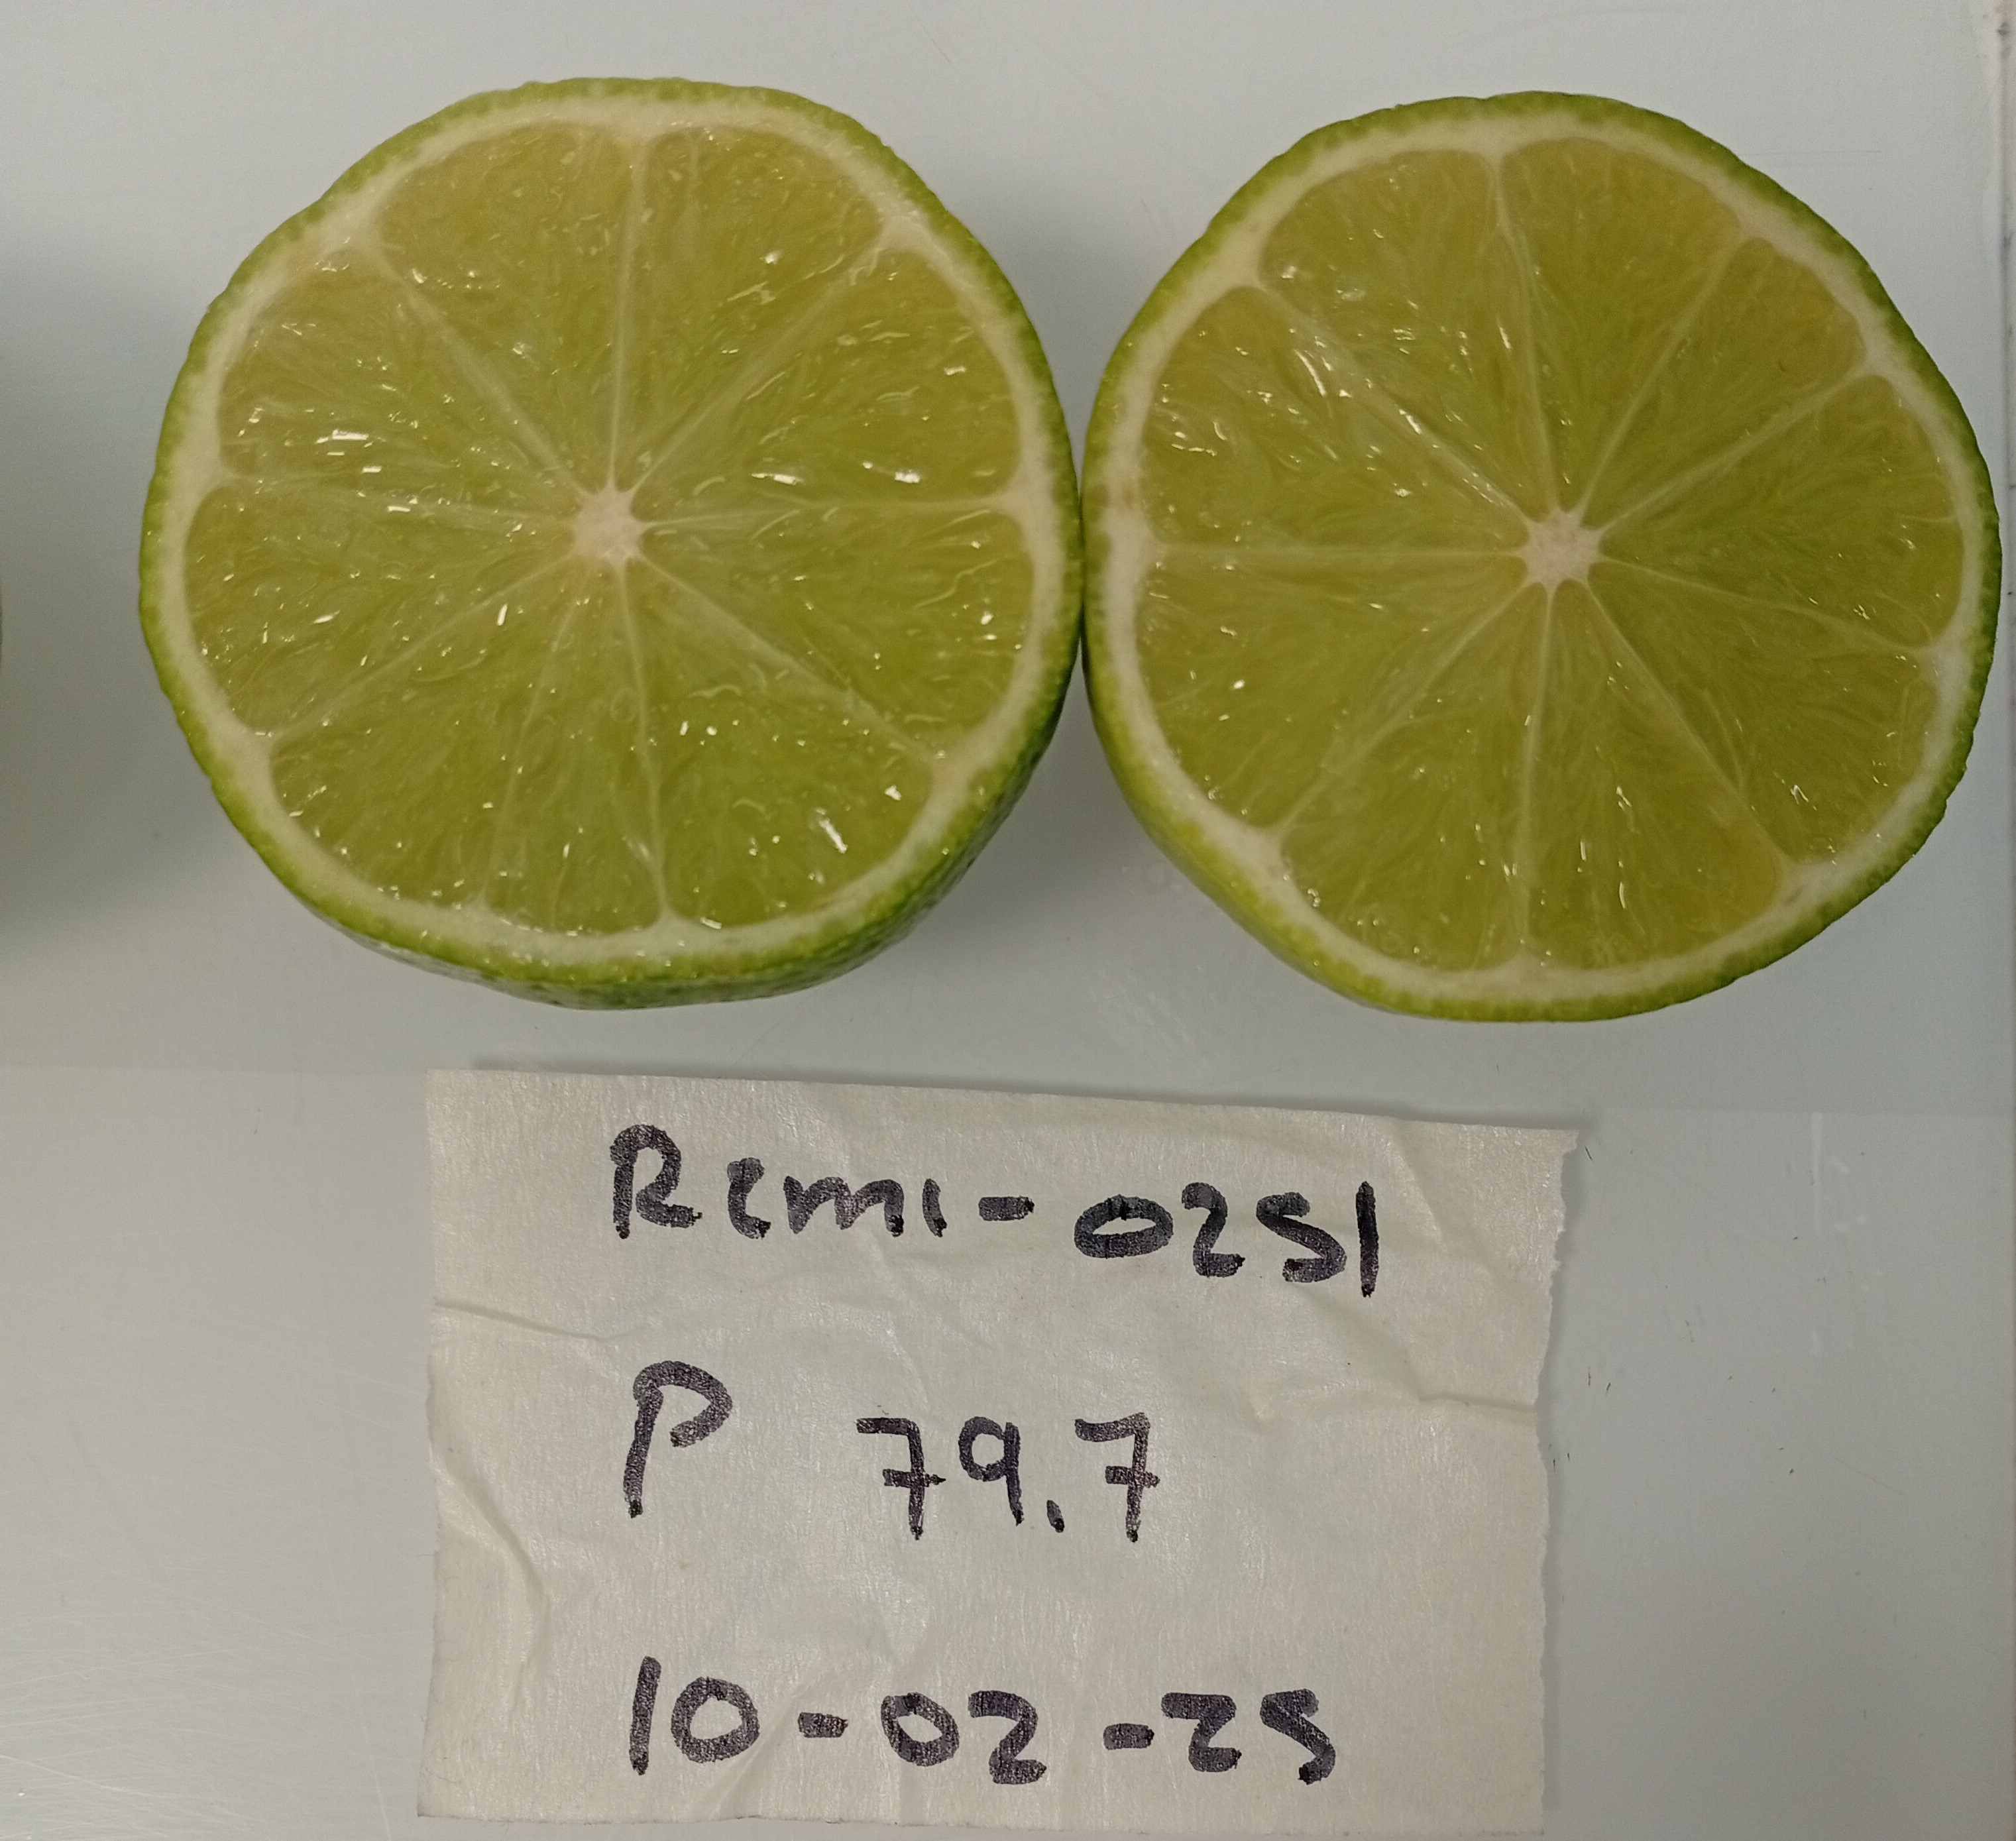 Remi-0251
P 79.7
10-02-25